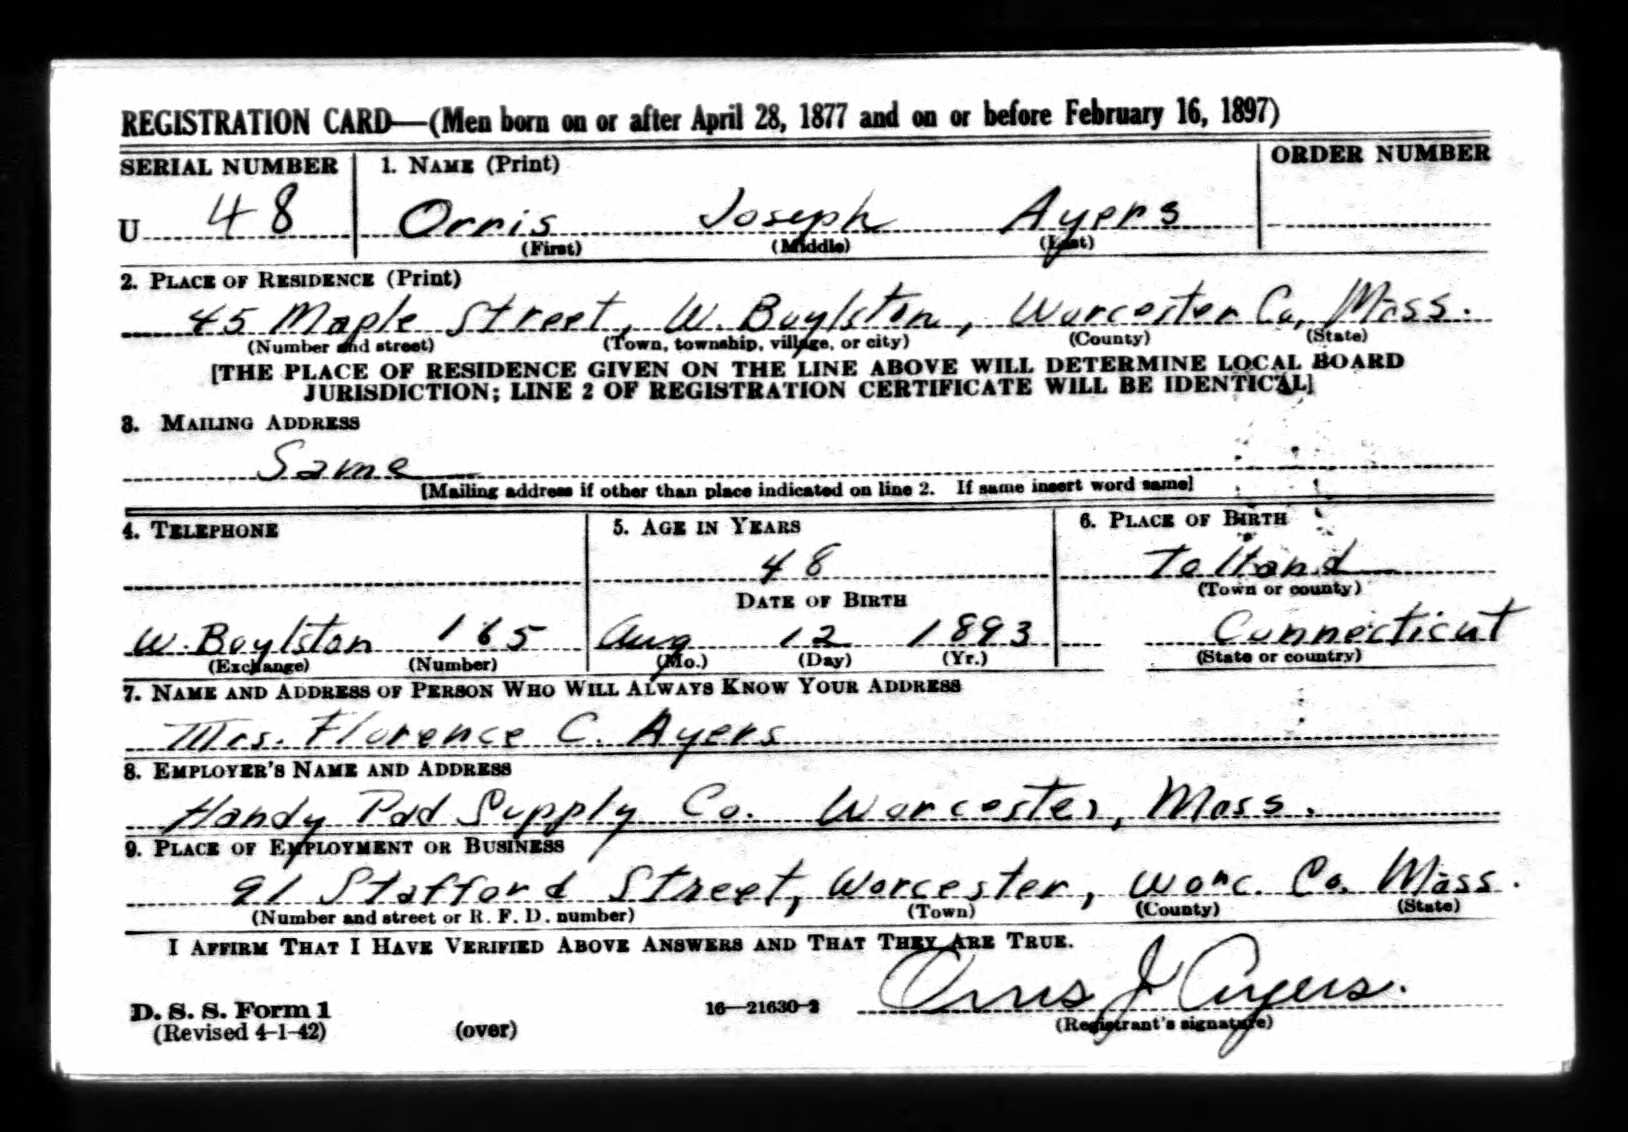 REGISTRATION CARD—(Men born on or after April 28, 1877 and on or before February 16, 1897)
SERIAL NUMBER 1. NAME (Print) ORDER NUMBER
U 48 Orris Joseph Ayers
(First) (Middle) (Last)
2. PLACE OF RESIDENCE (Print)
45 Maple Street, W. Boylston, Worcester Co, Mass.
(Number and street) (Town, township, village, or city) (County) (State)
[THE PLACE OF RESIDENCE GIVEN ON THE LINE ABOVE WILL DETERMINE LOCAL BOARD
JURISDICTION; LINE 2 OF REGISTRATION CERTIFICATE WILL BE IDENTICAL]
3. MAILING ADDRESS
Same
[Mailing address if other than place indicated on line 2. If same insert word same]
4. TELEPHONE 5. AGE IN YEARS 6. PLACE OF BIRTH
48 Tolland
DATE OF BIRTH (Town or county)
W. Boylston 165 Aug 12 1893 Connecticut
(Exchange) (Number) (Mo.) (Day) (Yr.) (State or country)
7. NAME AND ADDRESS OF PERSON WHO WILL ALWAYS KNOW YOUR ADDRESS
Mrs. Florence C. Ayers
8. EMPLOYER'S NAME AND ADDRESS
Handy Pad Supply Co. Worcester, Mass.
9. PLACE OF EMPLOYMENT OR BUSINESS
91 Stafford Street, Worcester, Worc. Co. Mass.
(Number and street or R. F. D. number) (Town) (County) (State)
I AFFIRM THAT I HAVE VERIFIED ABOVE ANSWERS AND THAT THEY ARE TRUE.
D. S. S. Form 1 16—21630-2 Orris J Ayers.
(Revised 4-1-42) (over) (Registrant's signature)